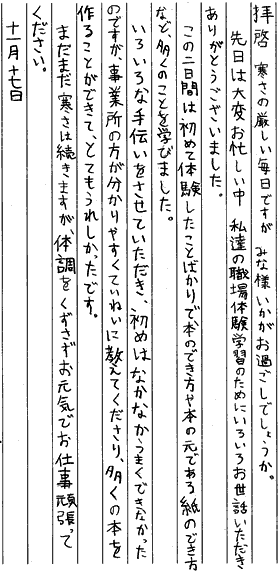 拝啓 寒さの厳しい毎日ですが みな様いかがお過ごしでしょうか。
先日は大変お忙しい中 私達の職場体験学習のためにいろいろお世話いただき
ありがとうございました。
この二日間は初めて体験したことばかりで本のでき方や本の元である紙のでき方
など、多くのことを学びました。
いろいろな手伝いをさせていただき、初めはなかなかうまくできなかった
のですが、事業所の方が分かりやすくていねいに教えてくださり、多くの本を
作ることができて、とてもうれしかったです。
まだまだ寒さは続きますが、体調をくずさずお元気でお仕事頑張って
ください。
十一月十七日